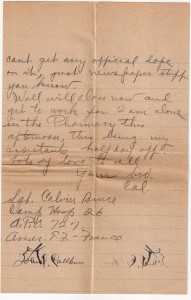 cant get any official dope
on it, just newspaper stuff
you know.
Well will close now and
get to work for I am alone
in the Pharmacy this
afternoon, this being my
assistants half day off
Lots of love to all
Your bro,
Cal
Sgt. Calvin Bruce
Camp Hosp 26
A.P.O. 727
Amer. E.F. - France